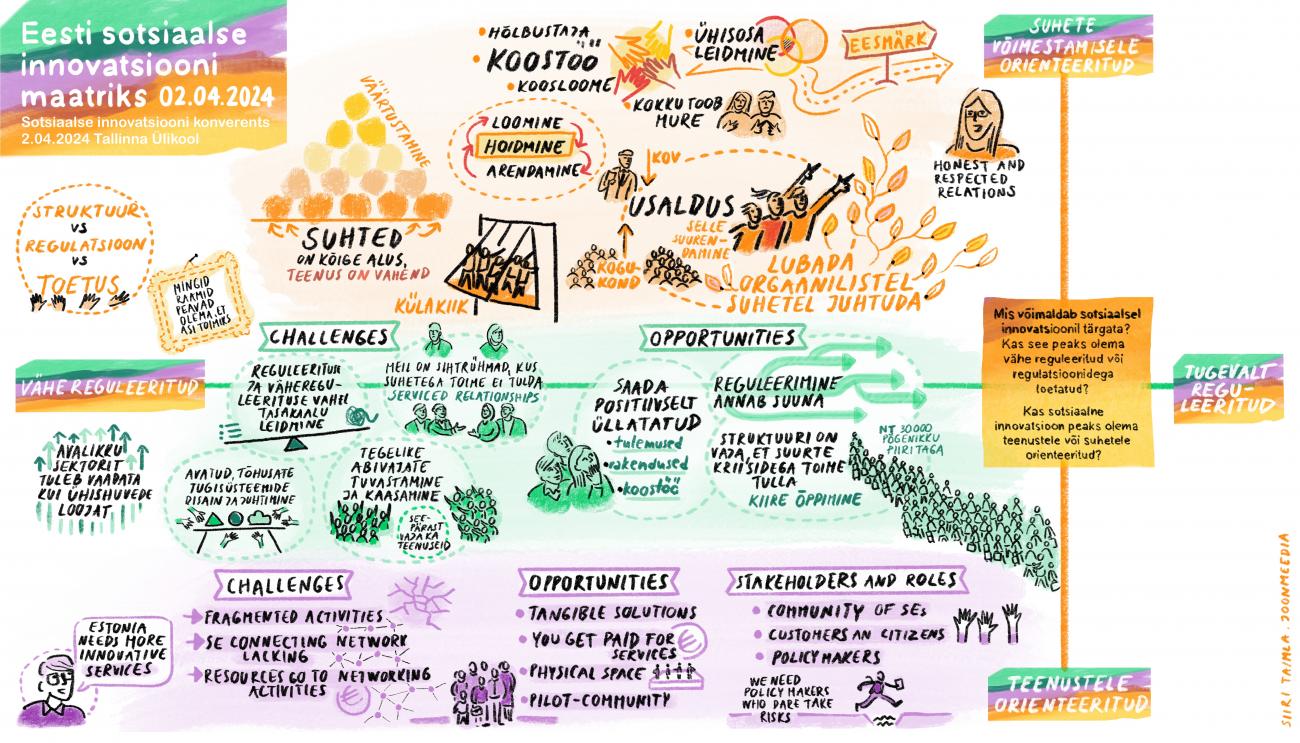 Eesti sotsiaalse
innovatsiooni
maatriks 02.04.2024
Sotsiaalse innovatsiooni konverents
2.04.2024 Tallinna Ülikool
VÄÄRTUSTAMINE
SUHTED
ON KÕIGE ALUS,
TEENUS ON VAHEND
HÕLBUSTAJA
KOOSTÖÖ
KOOSLOOME
ÜHISOSA
LEIDMINE
EESMÄRK
KOKKU TOOB
MURE
LOOMINE
HOIDMINE
ARENDAMINE
KOV
USALDUS
SELLE
SUUREN-
DAMINE
KOGU-
KOND
KÜLAKIIK
LUBADA
ORGAANILISTEL
SUHETEL JUHTUDA
HONEST AND
RESPECTED
RELATIONS
SUHETE
VÕIMESTAMISELE
ORIENTEERITUD
STRUKTUUR
VS
REGULATSIOON
VS
TOETUS
MINGID
RAAMID
PEAVAD
OLEMA, EI
ASI TOIMIKS
VÄHE REGULEERITUD
CHALLENGES
REGULEERITUSE
JA VÄHEREGU-
LEERITUSE VAHEL
TASAKAALU
LEIDMINE
MEIL ON SIHTRÜHMAD, KUS
SUHETEGA TOIME EI TULDA
SERVICED RELATIONSHIPS
AVALIKKU
SEKTORIT
TULEB VAADATA
KUI ÜHISHUVEDE
LOOJAT
AVATUD, TÕHUSATE
TUGISÜSTEEMIDE
DISAIN JA JUHTIMINE
TEGELIKE
ABIVAJATE
TUVASTAMINE
JA KAASAMINE
SEE-
PÄRAST
VAJA KA
TEENUSEID
OPPORTUNITIES
SAADA
POSITIIVSELT
ÜLLATATUD
• tulemused
• rakendused
• koostöö
REGULEERIMINE
ANNAB SUUNA
STRUKTUURI ON
VAJA, ET SUURTE
KRIISIDEGA TOIME
TULLA
KIIRE ÕPPIMINE
NT 30000
PÕGENIKKU
PIIRI TAGA
Mis võimaldab sotsiaalsel
innovatsioonil tärgata?
Kas see peaks olema
vähe reguleeritud või
regulatsioonidega
toetatud?
Kas sotsiaalne
innovatsioon peaks olema
teenustele või suhetele
orienteeritud?
TUGEVALT
REGU-
LEERITUD
ESTONIA
NEEDS MORE
INNOVATIVE
SERVICES
CHALLENGES
FRAGMENTED ACTIVITIES
SE CONNECTING NETWORK
LACKING
RESOURCES GO TO NETWORKING
ACTIVITIES
OPPORTUNITIES
• TANGIBLE SOLUTIONS
• YOU GET PAID FOR
SERVICES
• PHYSICAL SPACE
• PILOT-COMMUNITY
STAKEHOLDERS AND ROLES
• COMMUNITY OF SEs
• CUSTOMERS AN CITIZENS
• POLICYMAKERS
WE NEED
POLICY MAKERS
WHO DARE TAKE
RISKS
TEENUSTELE
ORIENTEERITUD
SIIRI TAIMLA . JOONMEEDIA